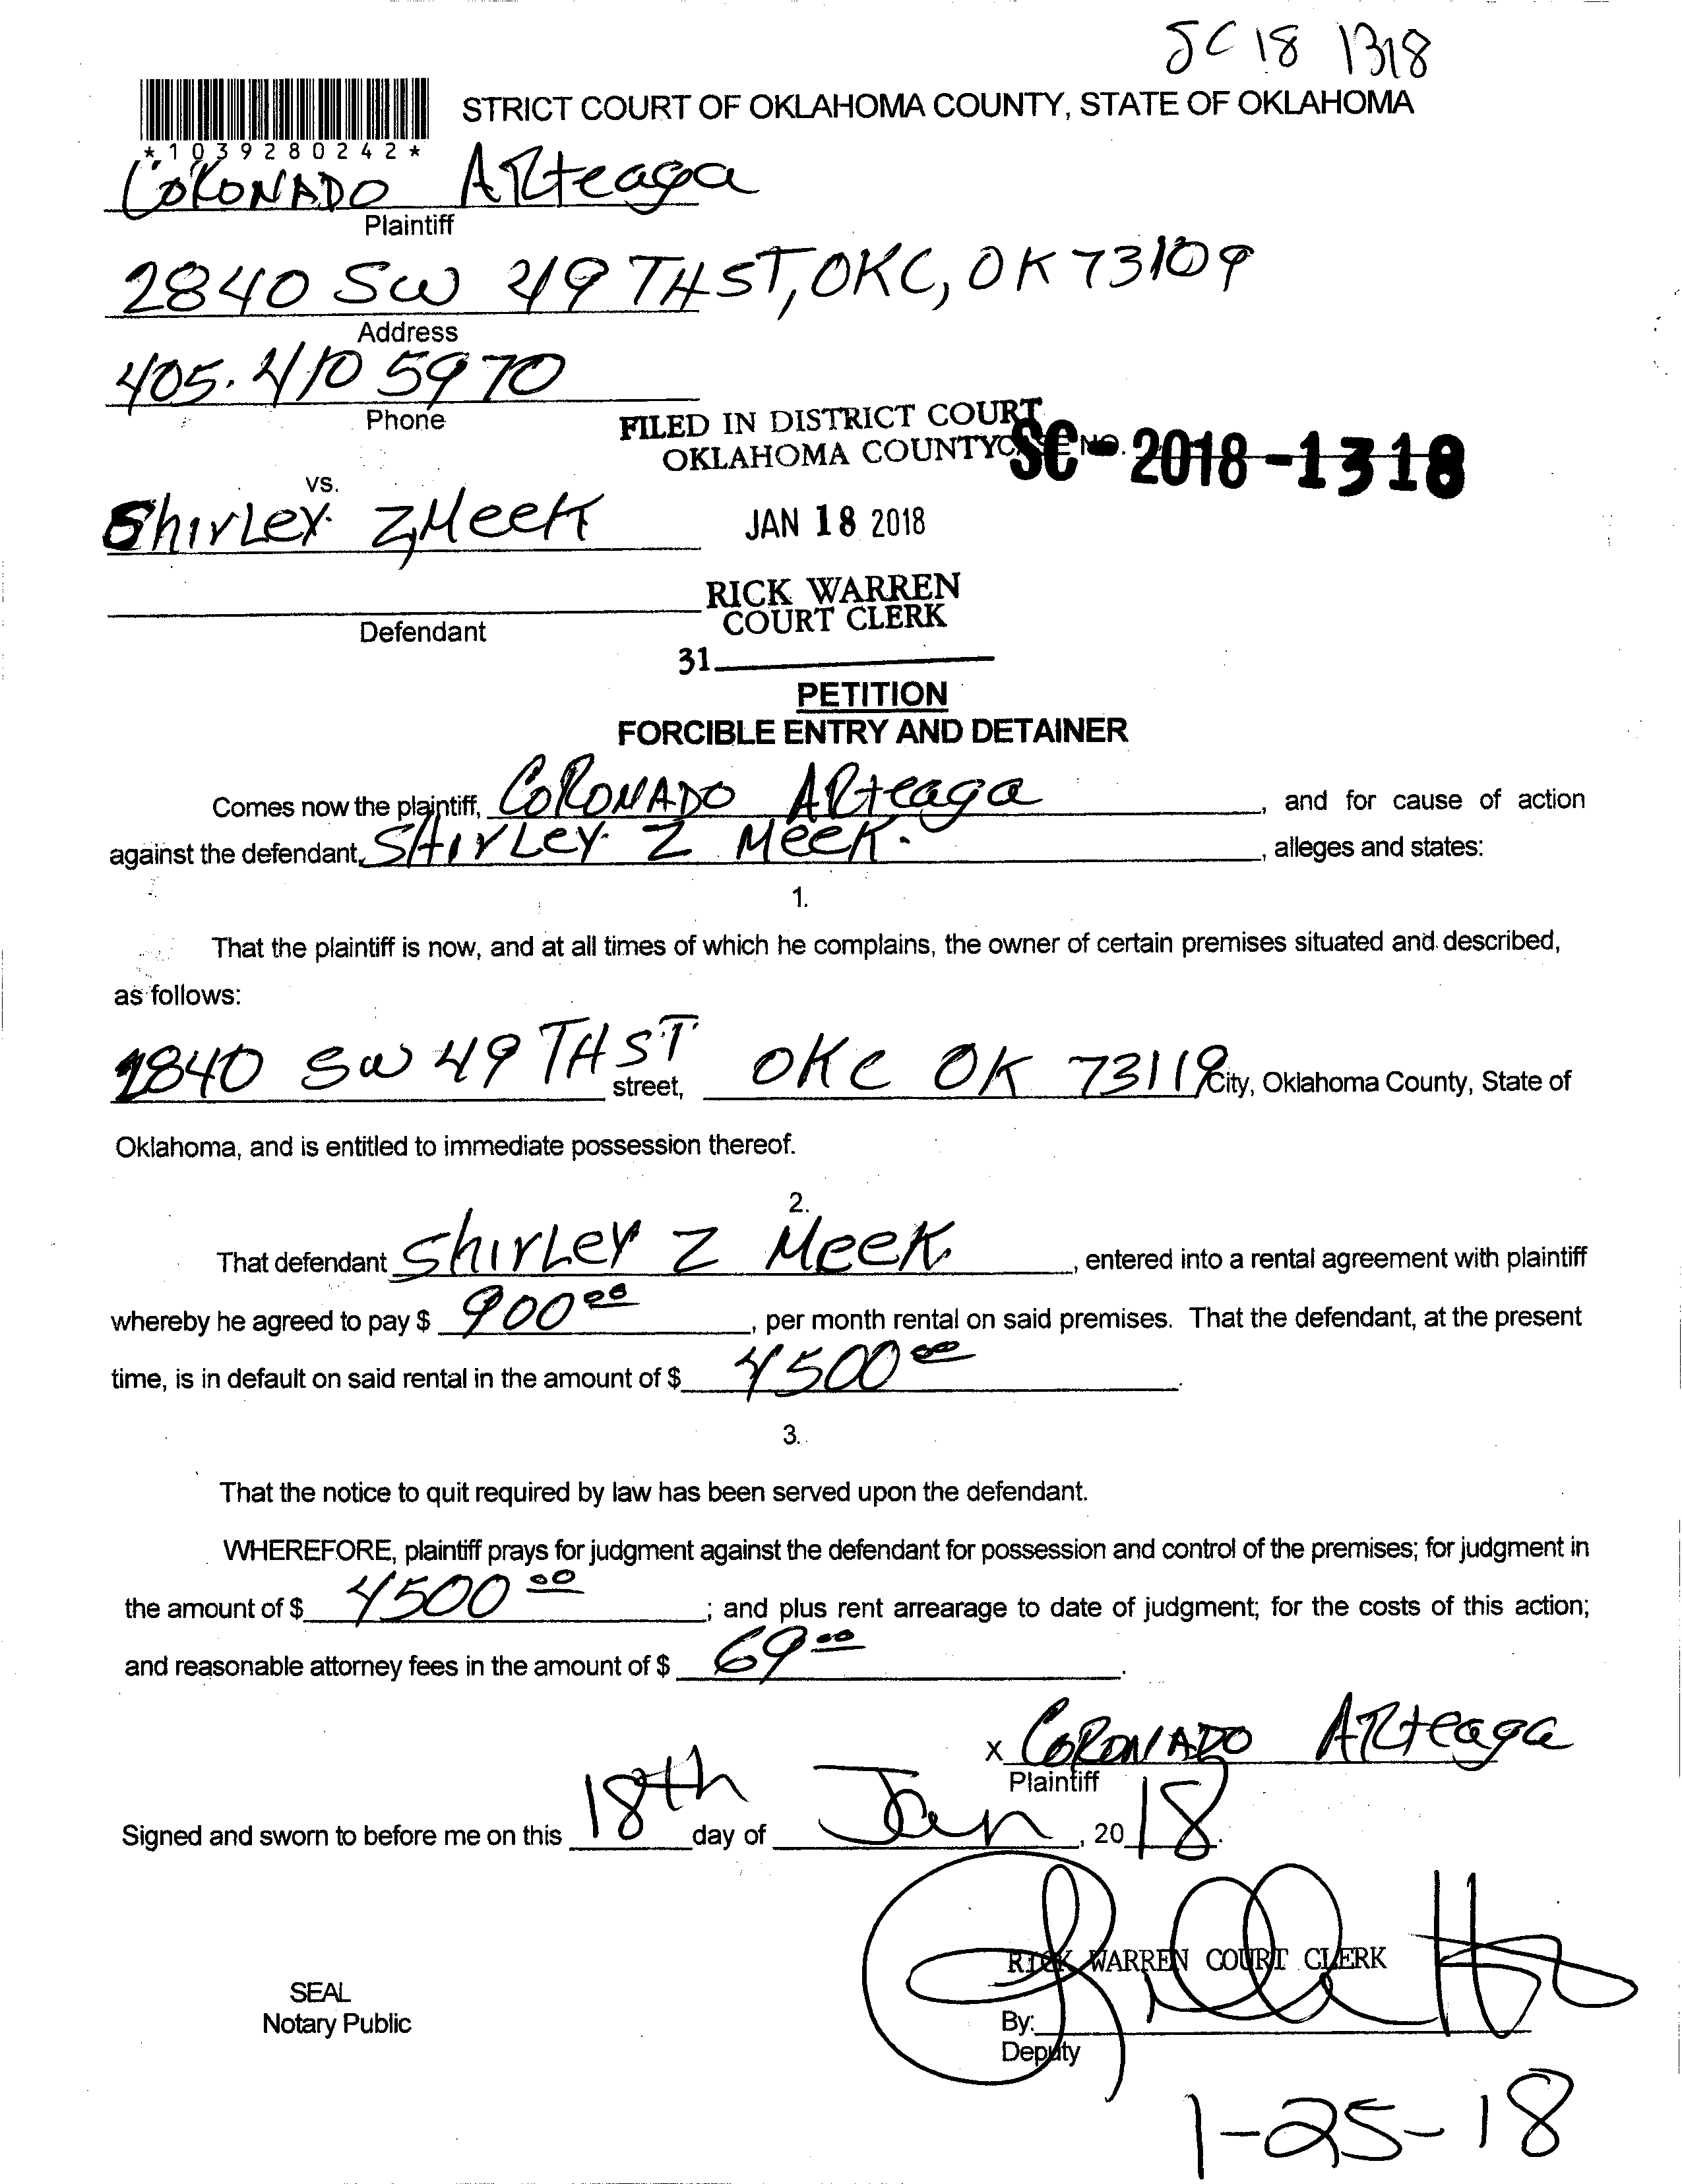 SC 18 1318
STRICT COURT OF OKLAHOMA COUNTY, STATE OF OKLAHOMA
*1039280242*
CORONADO ARteaga
Plaintiff
2840 SW 49 TH ST, OKC, OK 73109
Address
405. 410 5970
Phone
FILED IN DISTRICT COURT
OKLAHOMA COUNTY
NO. SC-2018-1318
vs.
ShirLey Z Meek
JAN 18 2018
RICK WARREN
COURT CLERK
Defendant
31
PETITION
FORCIBLE ENTRY AND DETAINER
Comes now the plaintiff, CORONADO ARteaga, and for cause of action
against the defendant, SHirLey Z Meek., alleges and states:
1.
That the plaintiff is now, and at all times of which he complains, the owner of certain premises situated and described,
as follows:
2840 SW 49 TH ST street, OKC OK 73119 City, Oklahoma County, State of
Oklahoma, and is entitled to immediate possession thereof.
2.
That defendant ShirLey Z Meek, entered into a rental agreement with plaintiff
whereby he agreed to pay $ 900 00, per month rental on said premises. That the defendant, at the present
time, is in default on said rental in the amount of $ 4500 00.
3.
That the notice to quit required by law has been served upon the defendant.
WHEREFORE, plaintiff prays for judgment against the defendant for possession and control of the premises; for judgment in
the amount of $ 4500 00; and plus rent arrearage to date of judgment; for the costs of this action;
and reasonable attorney fees in the amount of $ 69 00.
x CORONADO ARteaga
Plaintiff
Signed and sworn to before me on this 18th day of Jan, 20 18.
RICK WARREN COURT CLERK
SEAL
Notary Public
By:
Deputy
1-25-18